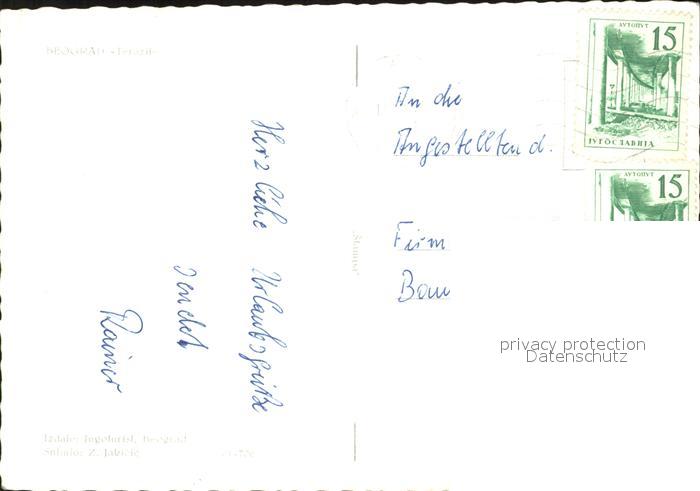 BEOGRAD «Terazije»
Herzliche Urlaubsgrüße
sendet
Rainer
Izdaje: Jugoturist, Beograd
Snimio: Z. Jakšić
An die
Angestellten d.
Firm
Bau
АУТОПУТ
15
ЈУГОСЛАВИЈА
АУТОПУТ
15
privacy protection
Datenschutz